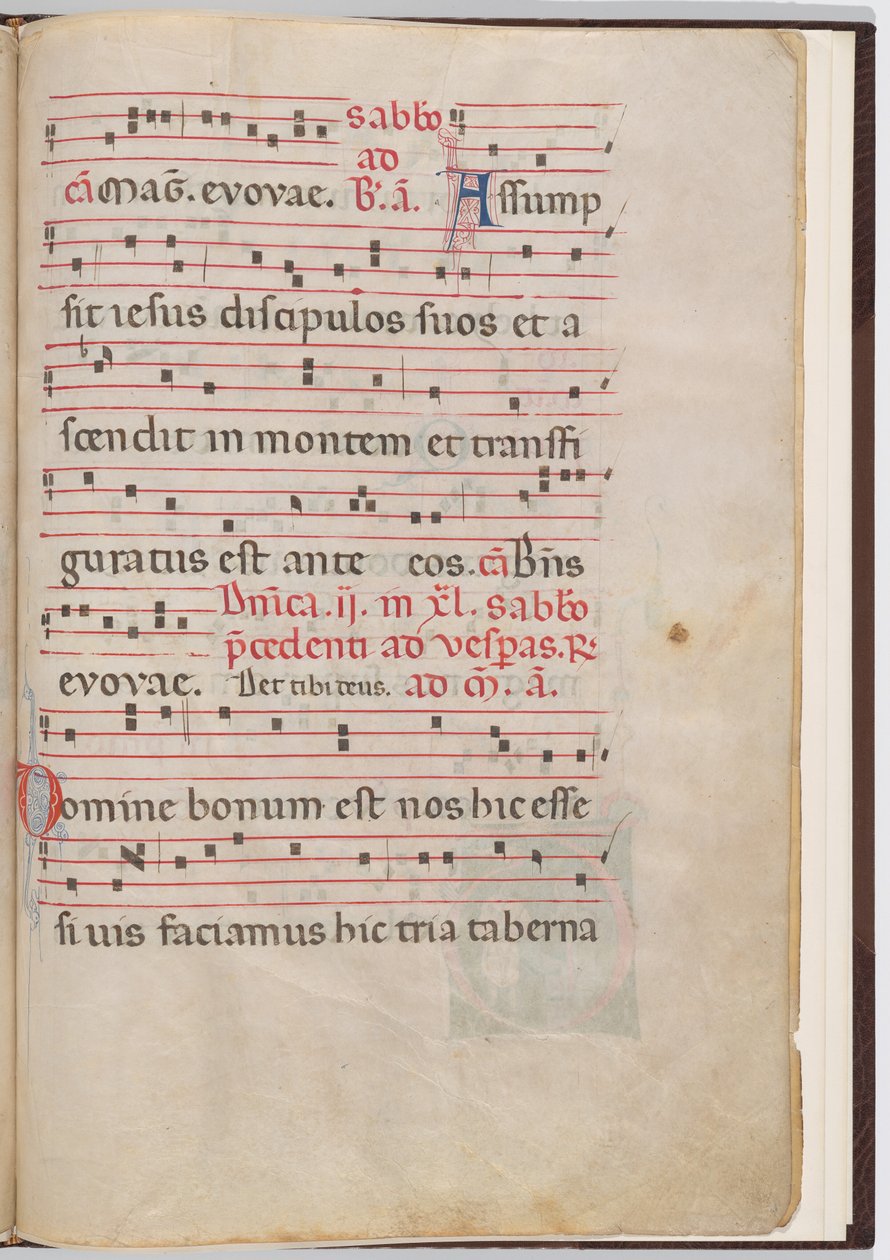 sabbo
ad
cã Mag̃. evovae. B̃. ã. Assump
sit iesus discipulos suos et a
scendit in montem et transfi
guratus est ante eos. cã Bñs
Dñica. ij. in xl. sabbo
p̃cedenti ad vesperas. R̃
evovae. Det tibi deus. ad M̃. ã.
Domine bonum est nos hic esse
si vis faciamus hic tria taberna